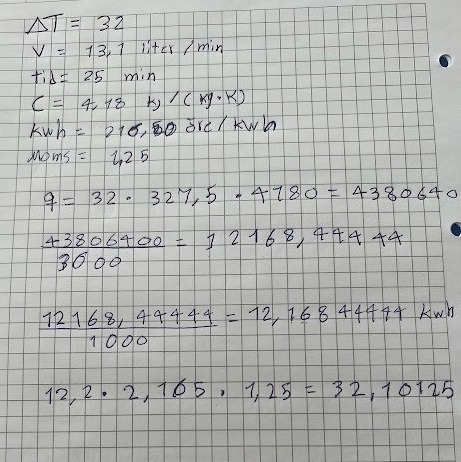 ΔT = 32
V = 13,1 liter/min
tid = 25 min
C = 4,18 kJ/(kg·K)
kwh = 216,50 öre/kwh
Moms = 1,25
q = 32 · 327,5 · 4180 = 4380640
43806400 = 12168,44444
3600
12168,44444 = 12,16844444 kwh
1000
12,2 · 2,165 · 1,25 = 32,10125